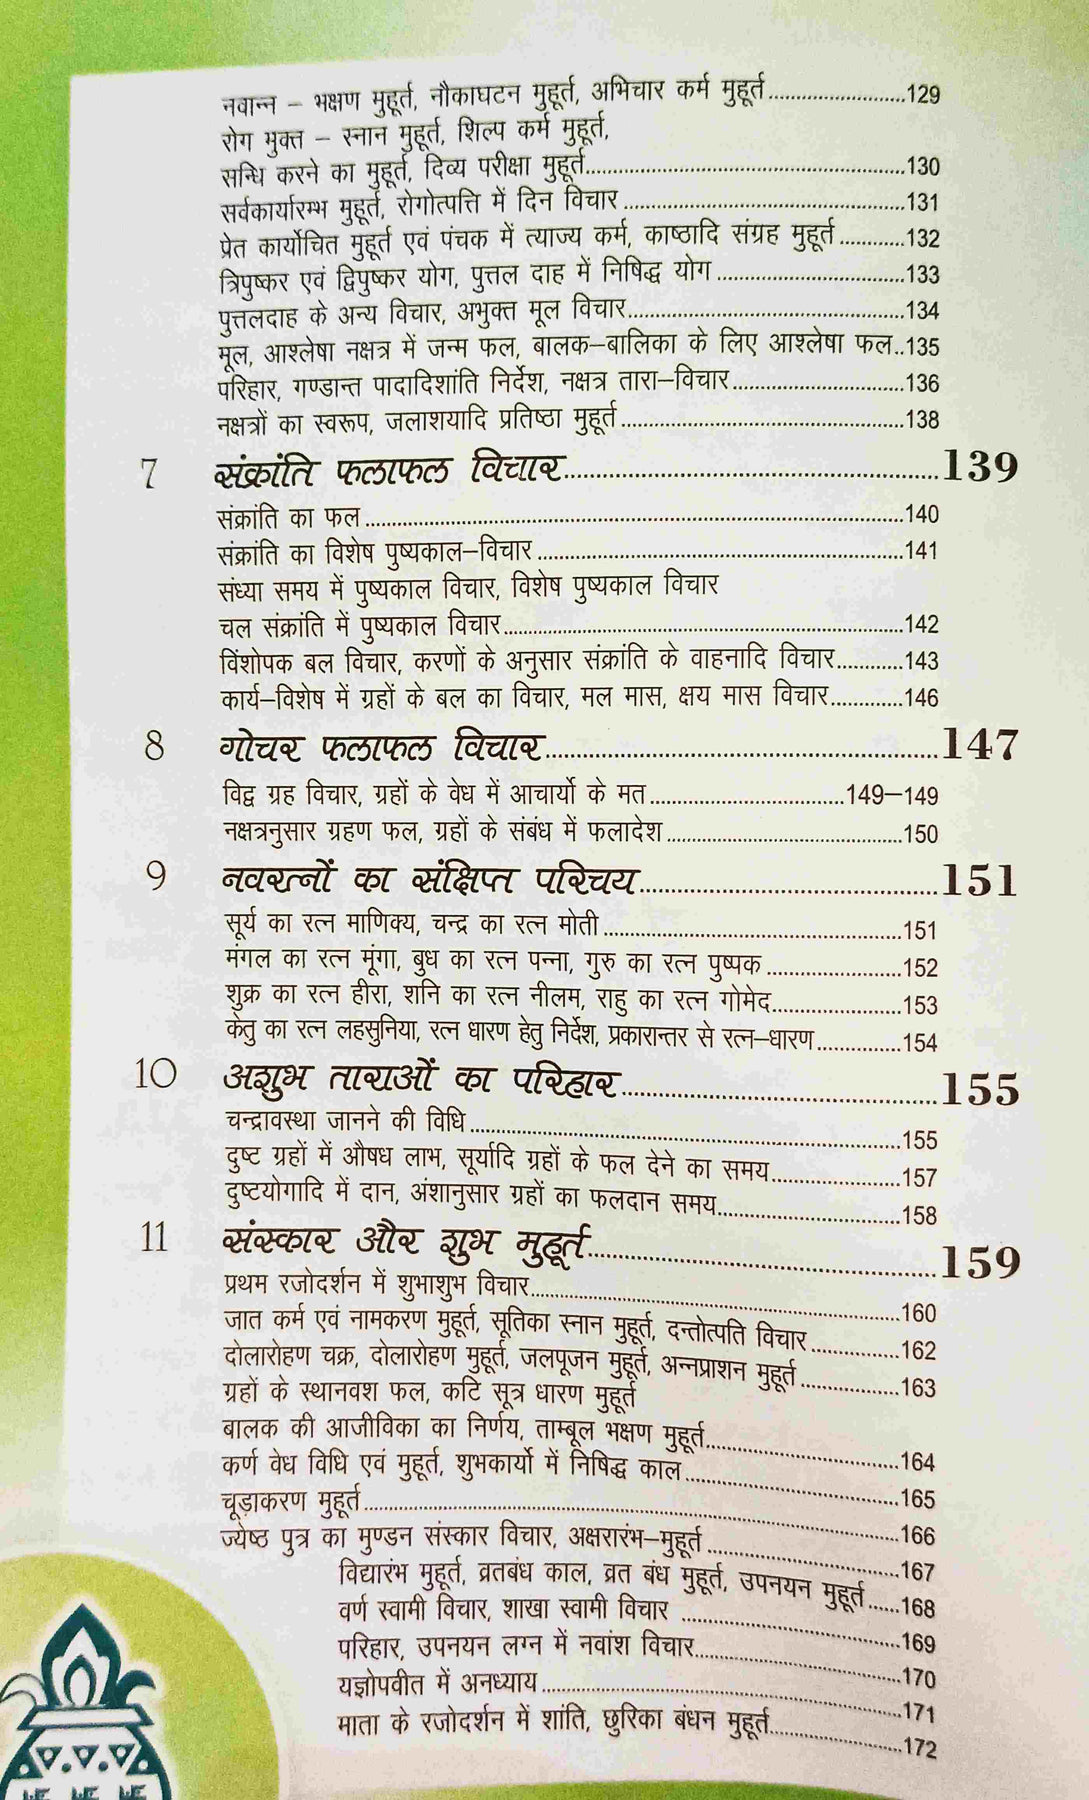 नवान्न – भक्षण मुहूर्त, नौकाघटन मुहूर्त, अभिचार कर्म मुहूर्त..........................129
रोग मुक्त – स्नान मुहूर्त, शिल्प कर्म मुहूर्त,
सन्धि करने का मुहूर्त, दिव्य परीक्षा मुहूर्त..........................130
सर्वकार्यारम्भ मुहूर्त, रोगोत्पत्ति में दिन विचार..........................131
प्रेत कार्योचित मुहूर्त एवं पंचक में त्याज्य कर्म, काष्ठादि संग्रह मुहूर्त............132
त्रिपुष्कर एवं द्विपुष्कर योग, पुत्तल दाह में निषिद्ध योग..........................133
पुत्तलदाह के अन्य विचार, अभुक्त मूल विचार..........................134
मूल, आश्लेषा नक्षत्र में जन्म फल, बालक–बालिका के लिए आश्लेषा फल..135
परिहार, गण्डान्त पादादिशांति निर्देश, नक्षत्र तारा–विचार..........................136
नक्षत्रों का स्वरूप, जलाशयादि प्रतिष्ठा मुहूर्त..........................138
7 संक्रांति फलाफल विचार..........................139
संक्रांति का फल..........................140
संक्रांति का विशेष पुष्यकाल–विचार..........................141
संध्या समय में पुष्यकाल विचार, विशेष पुष्यकाल विचार
चल संक्रांति में पुष्यकाल विचार..........................142
विंशोपक बल विचार, करणों के अनुसार संक्रांति के वाहनादि विचार............143
कार्य–विशेष में ग्रहों के बल का विचार, मल मास, क्षय मास विचार............146
8 गोचर फलाफल विचार..........................147
विद्व ग्रह विचार, ग्रहों के वेध में आचार्यो के मत..........................149–149
नक्षत्रनुसार ग्रहण फल, ग्रहों के संबंध में फलादेश..........................150
9 नवरत्नों का संक्षिप्त परिचय..........................151
सूर्य का रत्न माणिक्य, चन्द्र का रत्न मोती..........................151
मंगल का रत्न मूंगा, बुध का रत्न पन्ना, गुरु का रत्न पुष्पक....................152
शुक्र का रत्न हीरा, शनि का रत्न नीलम, राहु का रत्न गोमेद....................153
केतु का रत्न लहसुनिया, रत्न धारण हेतु निर्देश, प्रकारान्तर से रत्न–धारण.............154
10 अशुभ ताराओं का परिहार..........................155
चन्द्रावस्था जानने की विधि..........................155
दुष्ट ग्रहों में औषध लाभ, सूर्यादि ग्रहों के फल देने का समय....................157
दुष्टयोगादि में दान, अंशानुसार ग्रहों का फलदान समय..........................158
11 संस्कार और शुभ मुहूर्त..........................159
प्रथम रजोदर्शन में शुभाशुभ विचार..........................160
जात कर्म एवं नामकरण मुहूर्त, सूतिका स्नान मुहूर्त, दन्तोत्पति विचार.............162
दोलारोहण चक्र, दोलारोहण मुहूर्त, जलपूजन मुहूर्त, अन्नप्राशन मुहूर्त.............163
ग्रहों के स्थानवश फल, कटि सूत्र धारण मुहूर्त
बालक की आजीविका का निर्णय, ताम्बूल भक्षण मुहूर्त..........................164
कर्ण वेध विधि एवं मुहूर्त, शुभकार्यो में निषिद्ध काल..........................165
चूड़ाकरण मुहूर्त..........................166
ज्येष्ठ पुत्र का मुण्डन संस्कार विचार, अक्षरारंभ–मुहूर्त..........................167
विद्यारंभ मुहूर्त, व्रतबंध काल, व्रत बंध मुहूर्त, उपनयन मुहूर्त......168
वर्ण स्वामी विचार, शाखा स्वामी विचार..........................169
परिहार, उपनयन लग्न में नवांश विचार..........................170
यज्ञोपवीत में अनध्याय..........................171
माता के रजोदर्शन में शांति, छुरिका बंधन मुहूर्त..........................172